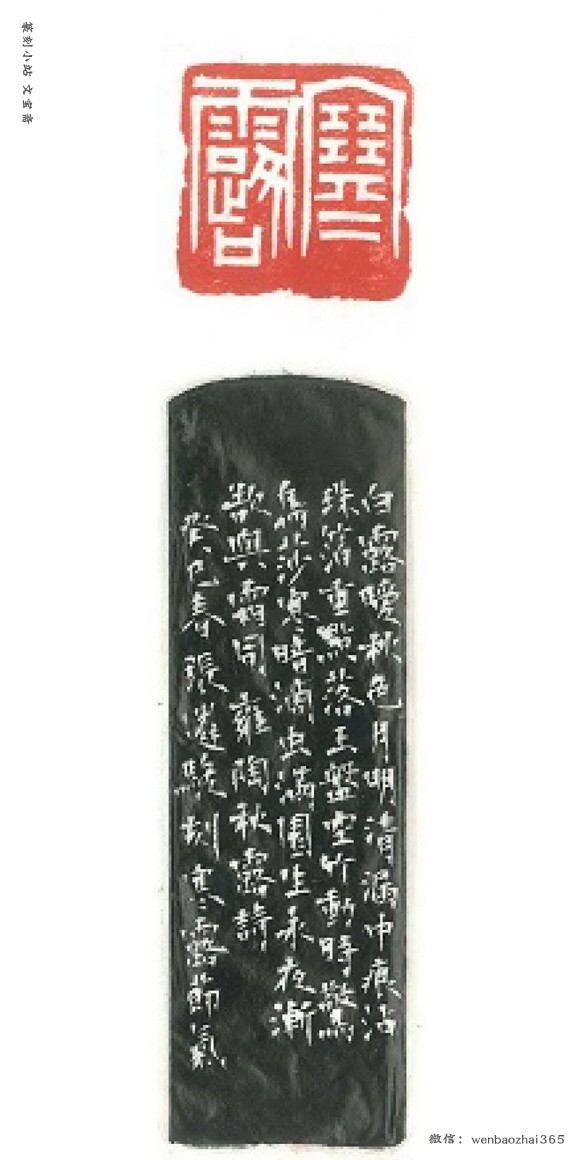 篆刻小站 文宝斋
寒露
白露曖秋色月明清漏中痕沾
珠箔重點落玉盤空竹動時驚
鳥莎寒暗滴虫滿園生永夜漸
欲與霜同雍陶秋露詩
癸巳春張遴駿刻寒露節氣
微信：wenbaozhai365